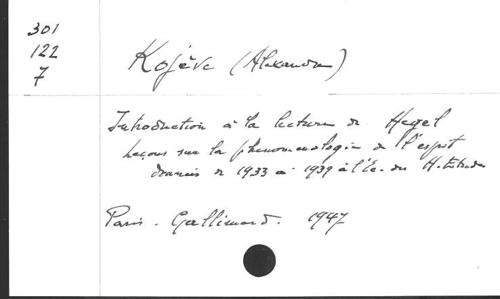 301
122
7
Kojève (Alexandre)
Introduction à la lecture de Hegel
Leçons sur la phénoménologie de l'esprit
données de 1933 à 1939 à l'Ec. des H. Etudes
Paris. Gallimard. 1947